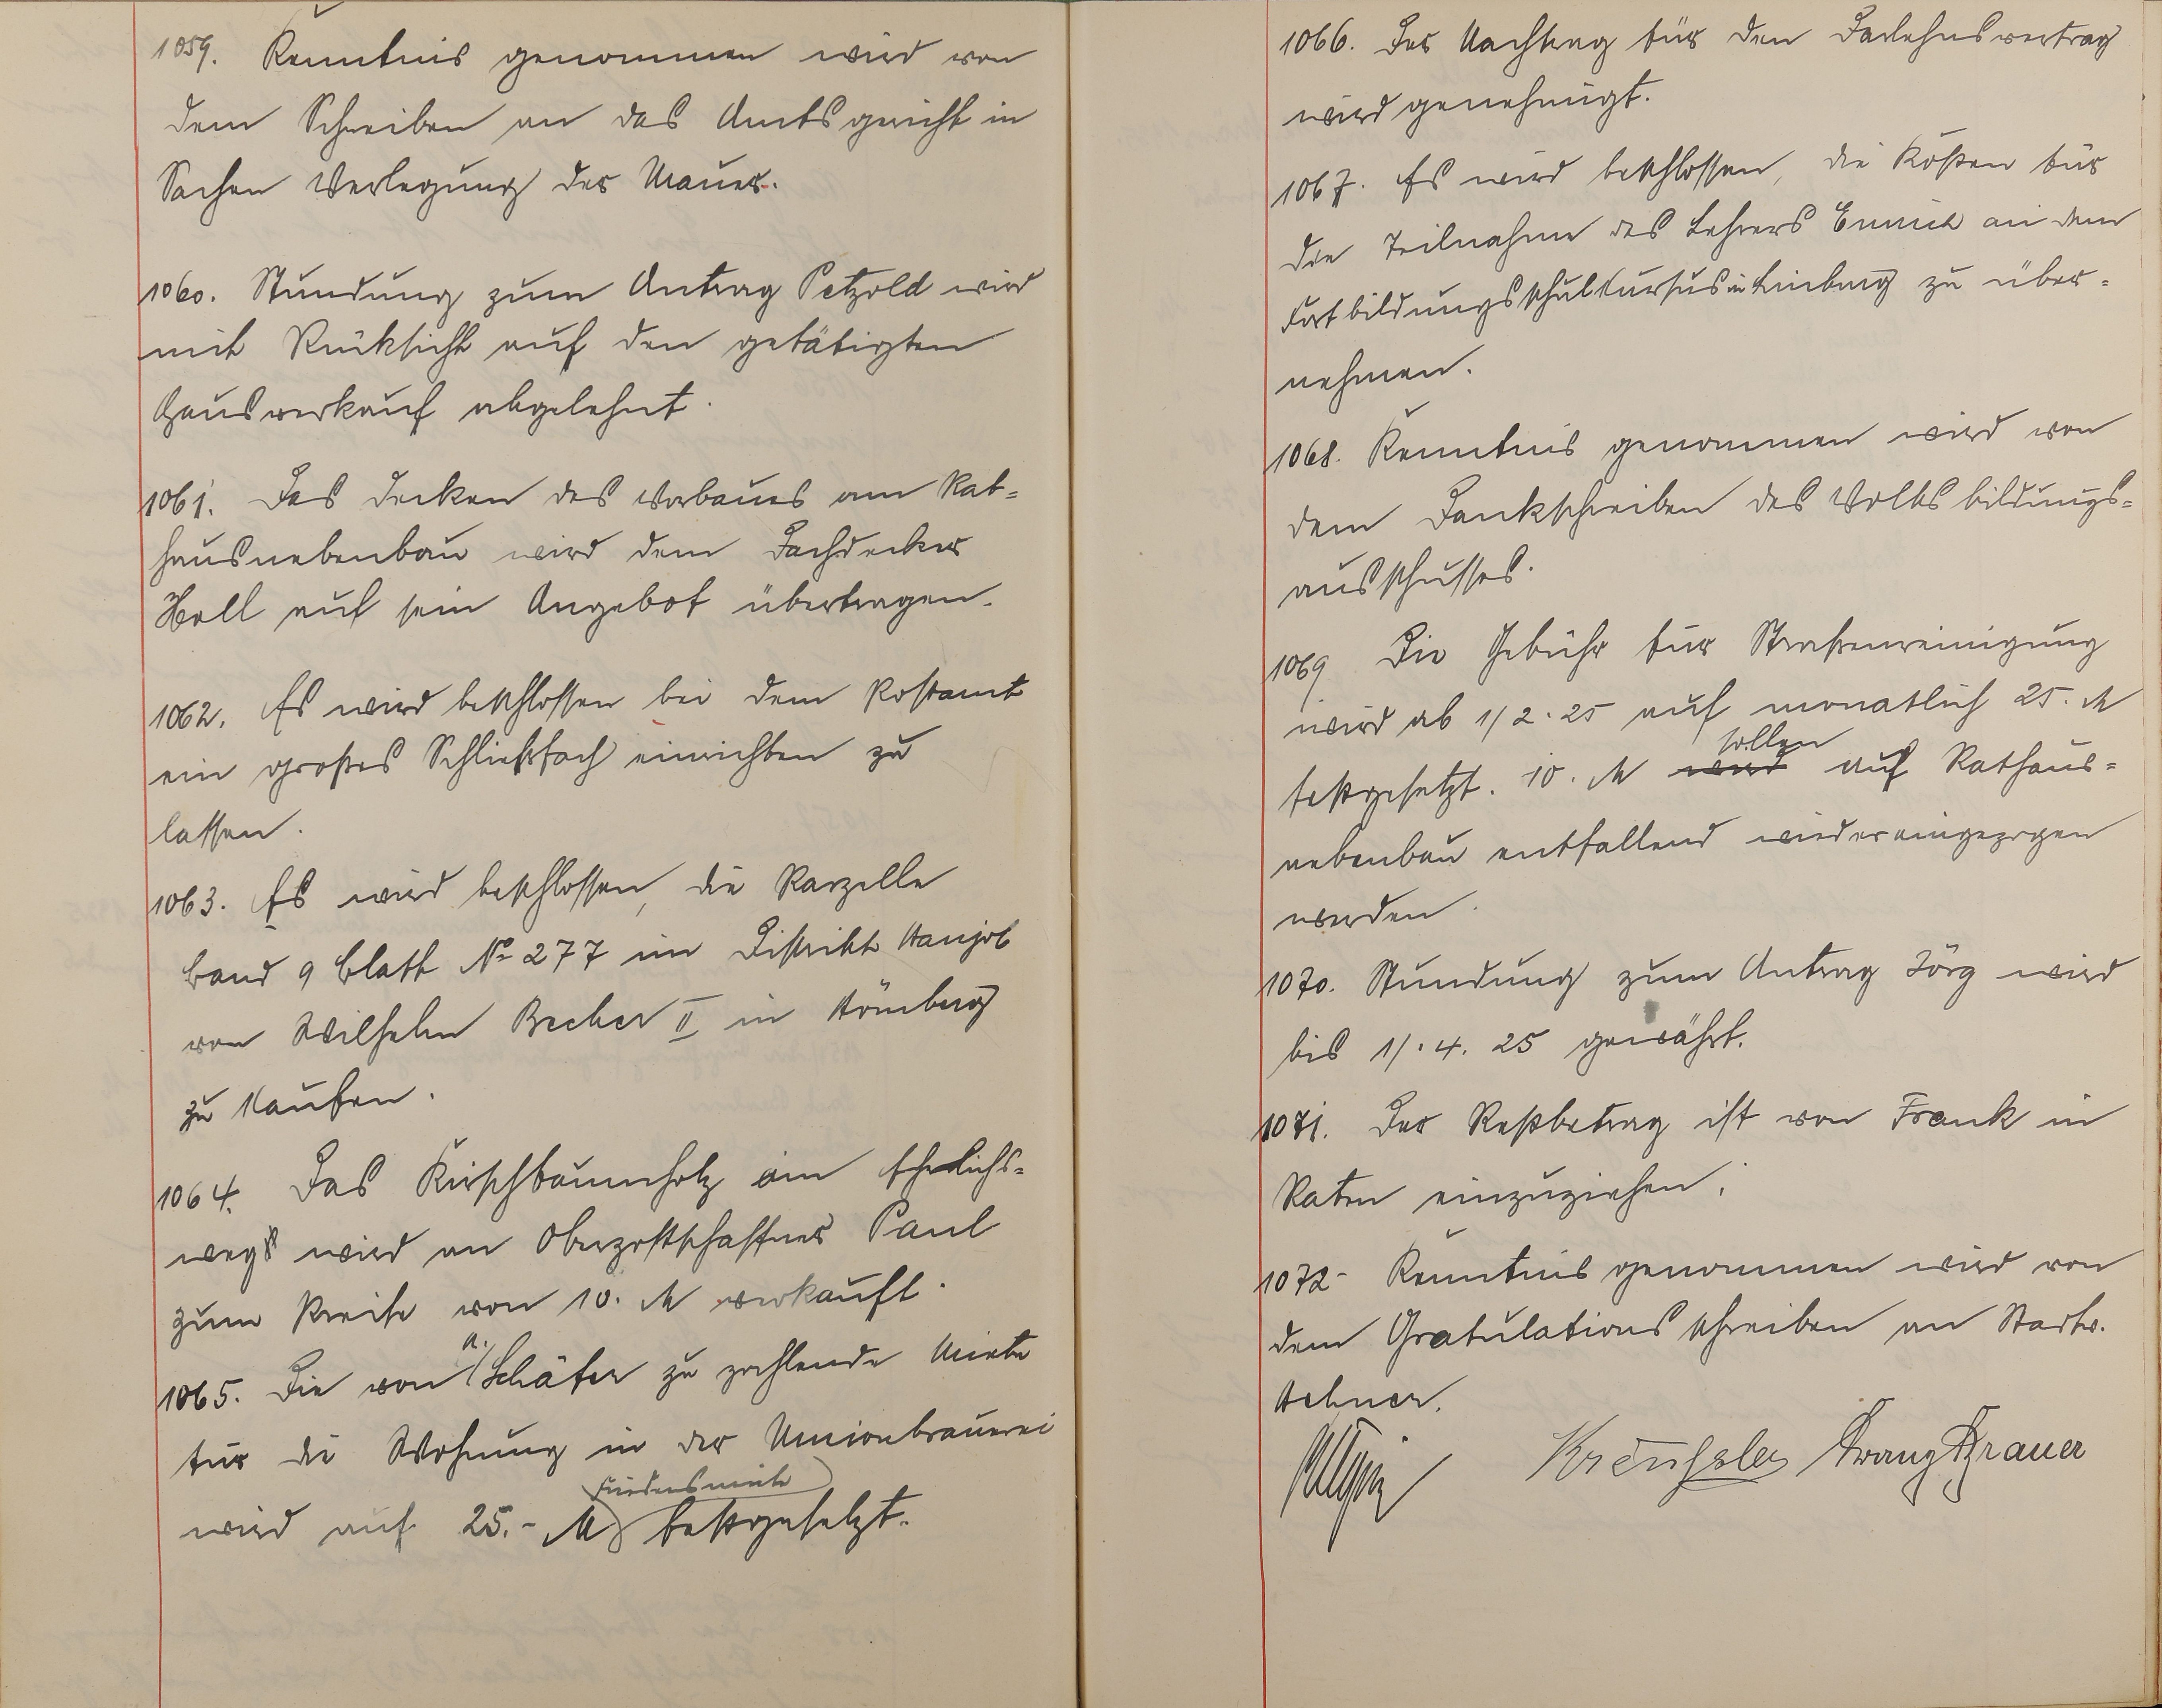 1059. Kenntnis genommen wird von
dem Schreiben an das Amtsgericht in
Sachen Verlegung der Mauer.
1060. Stundung zum Antrag Petzold wird
mit Rücksicht auf den getätigten
Hausverkauf abgelehnt.
1061. Das Decken des Vorbaues am Rat=
hausnebenbau wird dem Dachdecker
Holl auf sein Angebot übertragen.
1062. Es wird beschlossen bei dem Postamt
ein großes Schließfach einrichten zu
lassen.
1063. Es wird beschlossen, die Parzelle
Band 9 Blatt No 277 im Distrikt Hanjob
von Wilhelm Becher II in Hömberg
zu kaufen.
1064. Das Kirschbaumholz am Ehrlichs=
wegs wird an Oberpostschaffner Paul
zum Preise von 10. M verkauft.
1065. Die von A. Schäfer zu zahlende Miete
für die Wohnung in der Unionbrauerei
wird auf 25.- M Friedensmiete festgesetzt.
1066. Der Nachtrag für den Darlehnsvertrag
wird genehmigt.
1067. Es wird beschlossen, die Kosten für
die Teilnahme des Lehrers Emmich an dem
Fortbildungsschulkursus in Limburg zu über=
nehmen.
1068. Kenntnis genommen wird von
dem Dankschreiben des Volksbildungs=
ausschusses.
1069 Die Gebühr für Straßenreinigung
wird ab 1/2.25 auf monatlich 25. M
festgesetzt. 10. M wird sollen auf Rathaus=
nebenbau entfallend wiedereingezogen
werden.
1070. Stundung zum Antrag Jörg wird
bis 1/.4.25 gewährt.
1071. Der Restbetrag ist von Frank in
Raten einzuziehen.
1072- Kenntnis genommen wird von
dem Gratulationsschreiben an Stadtv.
Hehner.
Kreußler Franz Brauer